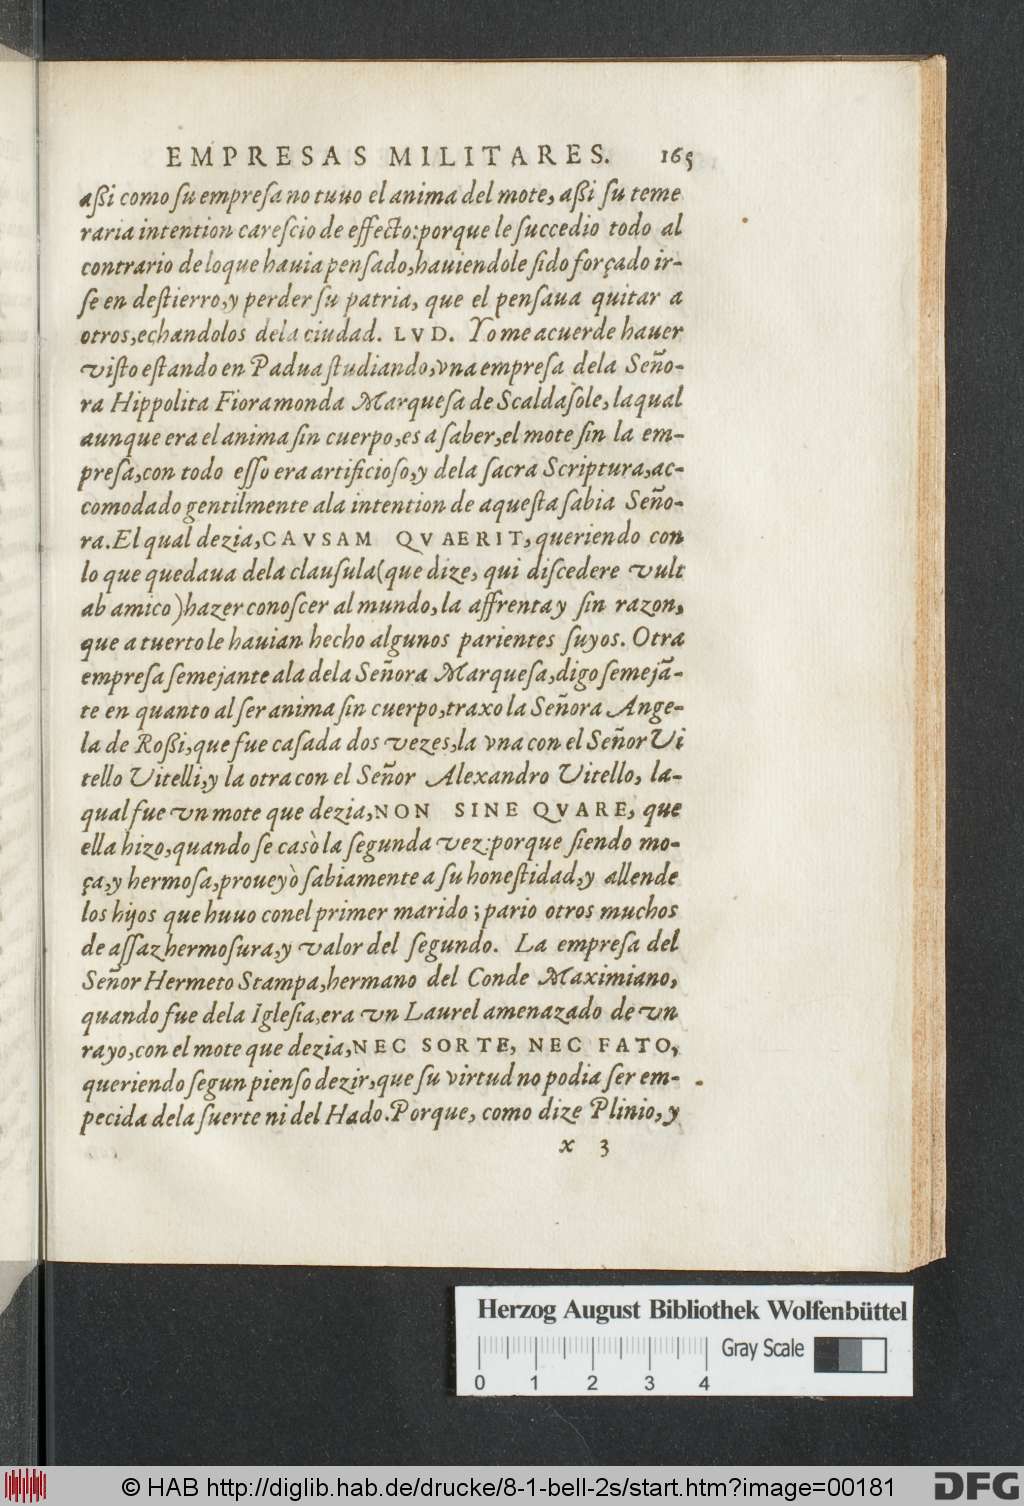 EMPRESAS MILITARES. 165
aßi como ſu empreſa no tuuo el anima del mote, aßi ſu teme
raria intention careſcio de effecto:porque le ſuccedio todo al
contrario de loque hauia penſado,hauiendole ſido forçado ir-
ſe en deſtierro,y perder ſu patria, que el penſaua quitar a
otros,echandolos dela ciudad. LVD. Yo me acuerde hauer
viſto eſtando en Padua ſtudiando,vna empreſa dela Seño-
ra Hippolita Fioramonda Marqueſa de Scaldaſole, laqual
aunque era el anima ſin cuerpo,es a ſaber,el mote ſin la em-
preſa,con todo eſſo era artificioſo,y dela ſacra Scriptura,ac-
comodado gentilmente ala intention de aqueſta ſabia Seño-
ra.El qual dezia,CAVSAM QVAERIT,queriendo con
lo que quedaua dela clauſula(que dize, qui diſcedere vult
ab amico)hazer conoſcer al mundo,la affrenta y ſin razon,
que a tuerto le hauian hecho algunos parientes ſuyos. Otra
empreſa ſemejante ala dela Señora Marqueſa,digo ſemejā-
te en quanto al ſer anima ſin cuerpo,traxo la Señora Ange-
la de Roßi,que fue caſada dos vezes,la vna con el Señor Vi
tello Vitelli,y la otra con el Señor Alexandro Vitello, la-
qual fue vn mote que dezia,NON SINE QVARE, que
ella hizo,quando ſe casò la ſegunda vez:porque ſiendo mo-
ça,y hermoſa,proueyò ſabiamente a ſu honeſtidad,y allende
los hijos que huuo conel primer marido;pario otros muchos
de aſſaz hermoſura,y valor del ſegundo. La empreſa del
Señor Hermeto Stampa,hermano del Conde Maximiano,
quando fue dela Igleſia,era vn Laurel amenazado de vn
rayo,con el mote que dezia,NEC SORTE, NEC FATO,
queriendo ſegun pienſo dezir,que ſu virtud no podia ſer em-
pecida dela ſuerte ni del Hado.Porque, como dize Plinio,y
x 3
Herzog August Bibliothek Wolfenbüttel
Gray Scale
0 1 2 3 4
© HAB http://diglib.hab.de/drucke/8-1-bell-2s/start.htm?image=00181
DFG